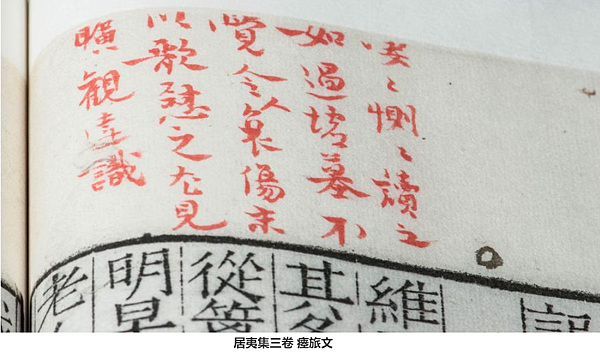 凄〻惻〻讀之
如過墟墓不
覺令人哀傷末
以歌慰之尤見
曠觀達識
維
其
從
明早
老
居夷集三卷 瘞旅文